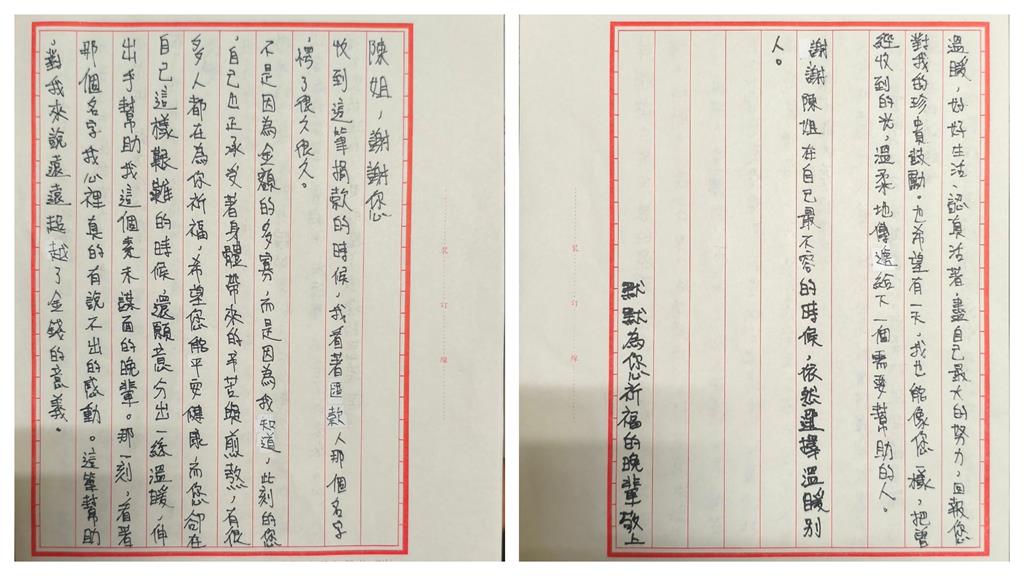 陳姐，謝謝您
收到這筆捐款的時候，我看著匯款人那個名字
，愣了很久很久。
不是因為金額的多寡，而是因為我知道，此刻的您
，自己也正承受著身體帶來的辛苦與煎熬，有很
多人都在為你祈福，希望您能平安健康，而您卻在
自己這樣艱難的時候，還願意分出一絲溫暖，伸
出手幫助我這個素未謀面的晚輩。那一刻，看著
那個名字我心裡真的有說不出的感動。這筆幫助
，對我來說遠遠超越了金錢的意義。
裝 訂 線
溫暖，好好生活、認真活著，盡自己最大的努力，回報您
對我的珍貴鼓勵。也希望有一天，我也能像您一樣，把曾
經收到的光，溫柔地傳遞給下一個需要幫助的人。
謝謝陳姐在自己最不容的時候，依然選擇溫暖別
人。
默默為您祈福的晚輩敬上
裝 訂 線